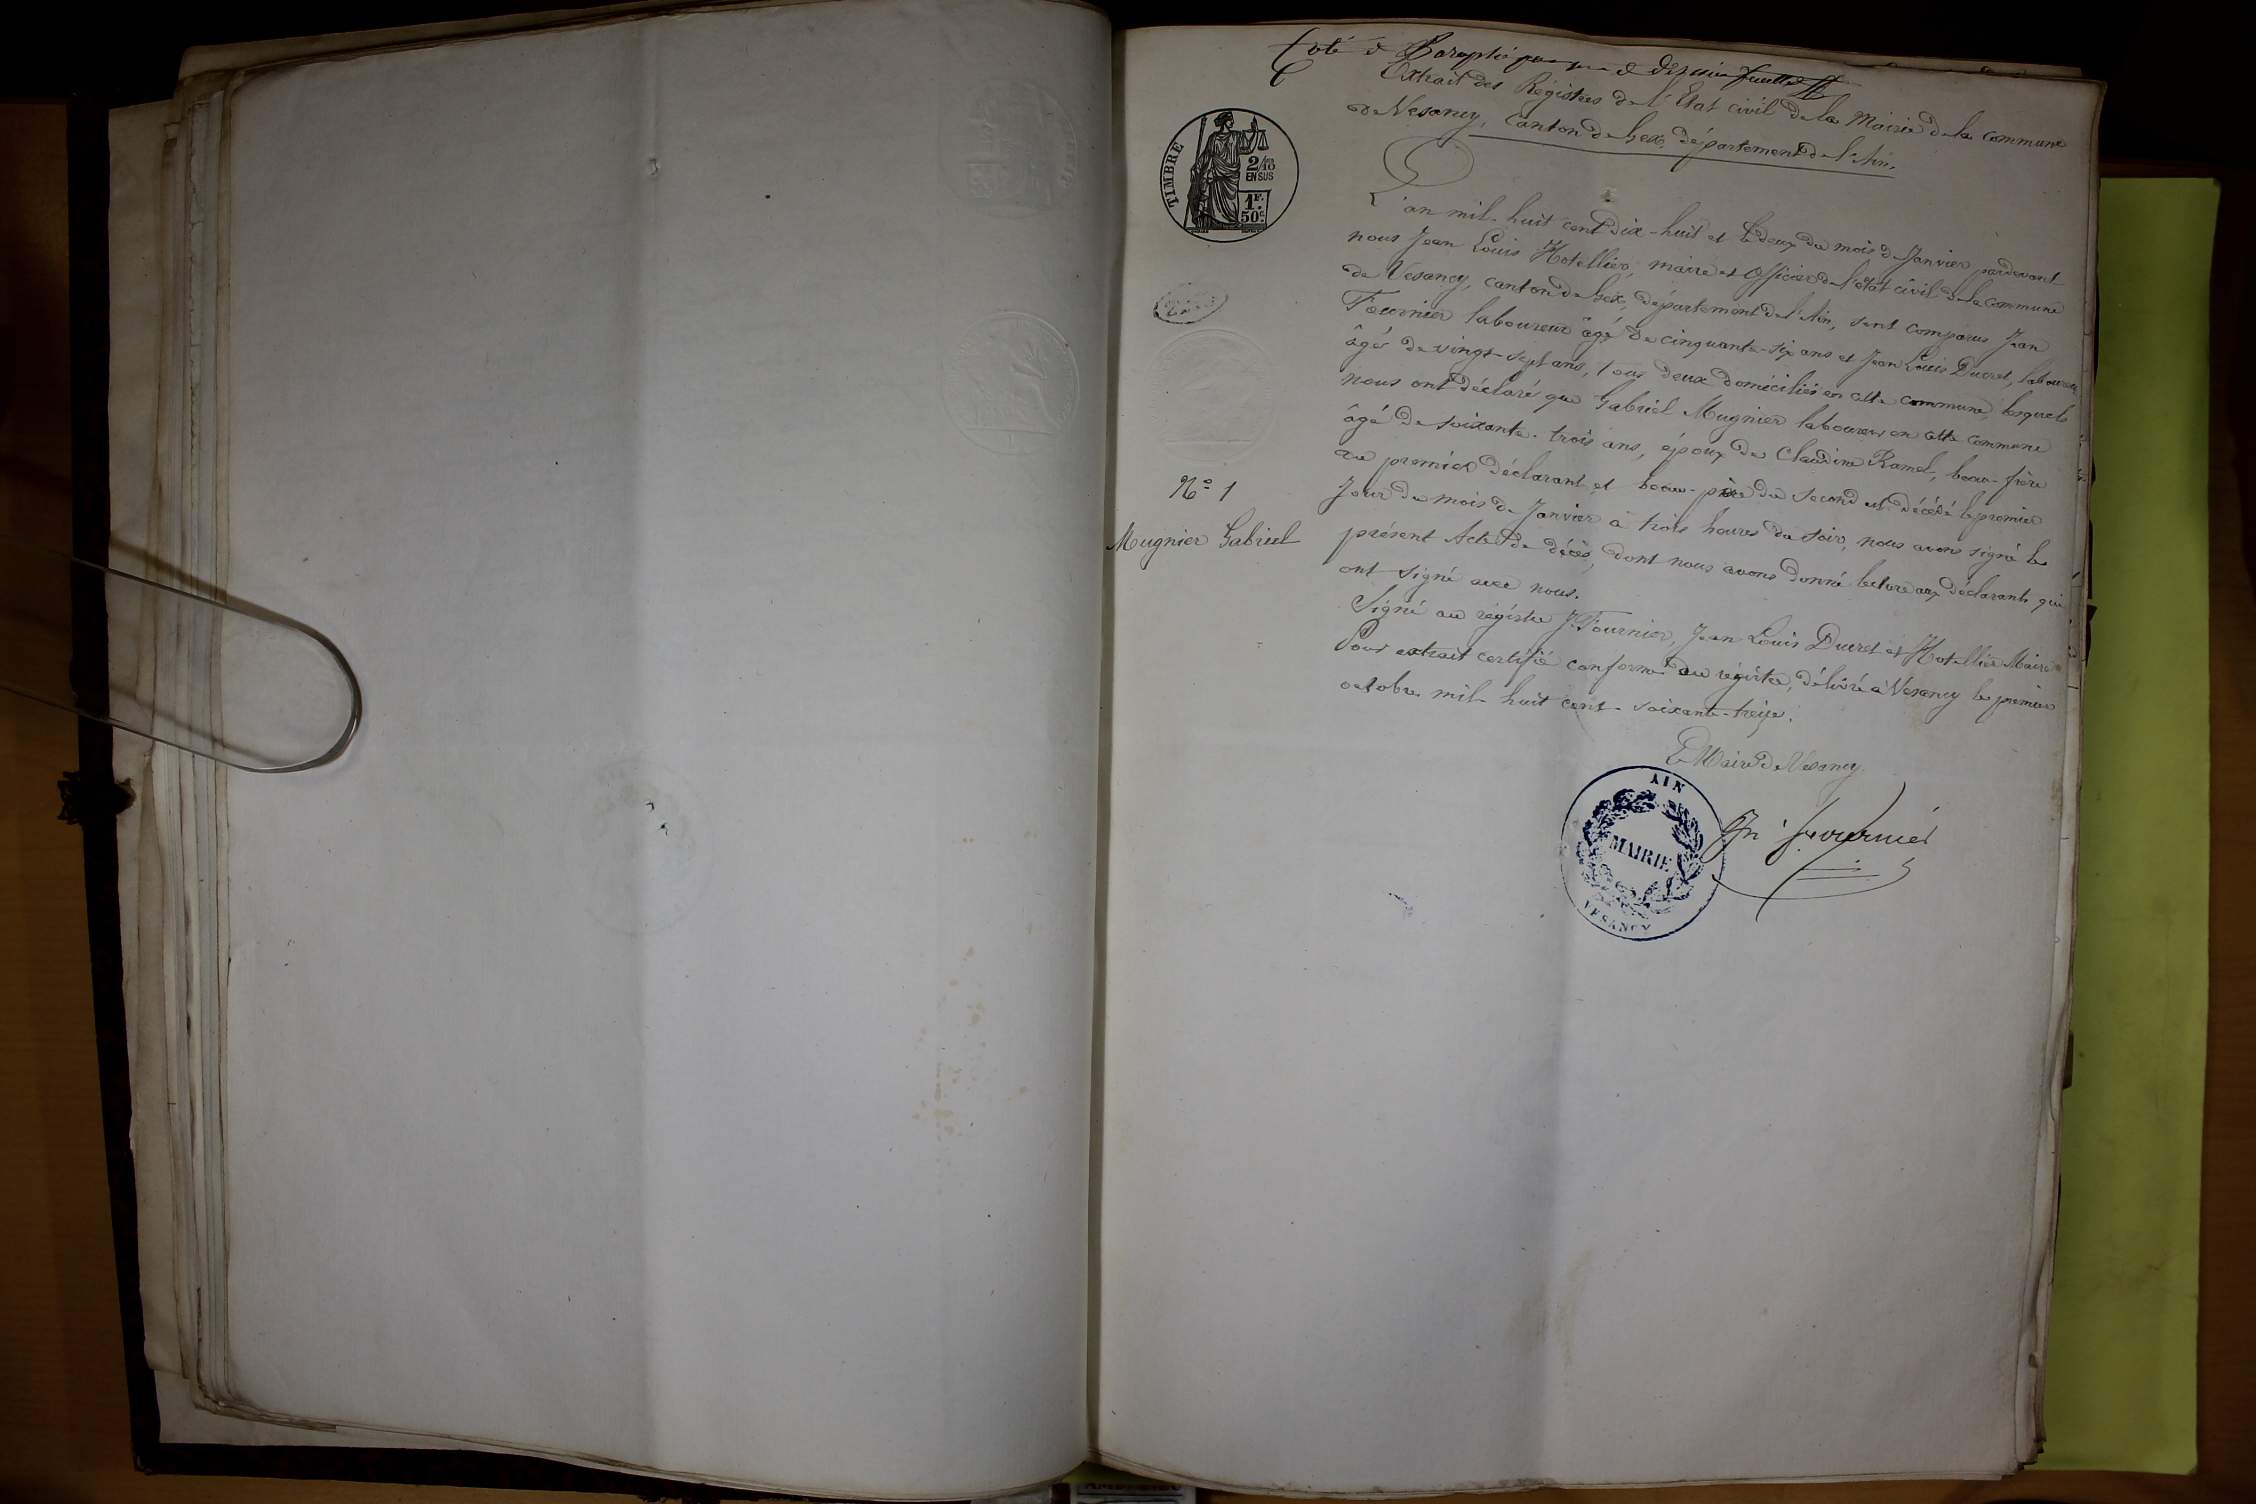 Coté & Paraphé par
Extrait des Registres de l'Etat civil de la Mairie de la commune
de Vesancy, canton de Gex, département de l'Ain.
TIMBRE
2/10
EN SUS
1F.
50c.
L'an mil-huit cent dix-huit et le deux du mois de Janvier pardevant
nous Jean Louis Hotellier, maire et Officier de l'état civil de la commune
de Vesancy, canton de Gex, département de l'Ain, sont comparus Jean
Fournier laboureur âgé de cinquante-six ans et Jean Louis Ducret, laboureur
âgé de vingt-sept ans, tous deux domiciliés en cette commune, lesquels
nous ont déclaré que Gabriel Mugnier laboureur en cette commune
âgé de soixante-trois ans, époux de Claudine Ramel, beau-frère
au premier déclarant et beau-père du second est décédé le premier
Jour du mois de Janvier à trois heures du soir, nous avons signé le
présent Acte de décès, dont nous avons donné lecture aux déclarants qui
ont signé avec nous.
N° 1
Mugnier Gabriel
Signé au régistre J. Fournier, Jean Louis Ducret et Hotellier Maire
Pour extrait certifié conforme au régistre, délivré à Vesancy le premier
octobre mil-huit cent-soixante-treize.
Le Maire de Vesancy
AIN
MAIRIE
VESANCY
Fournier